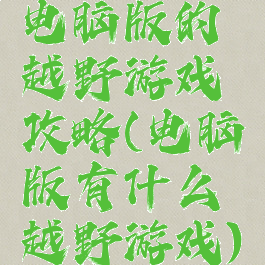 电脑版的
越野游戏
攻略(电脑
版有什么
越野游戏)